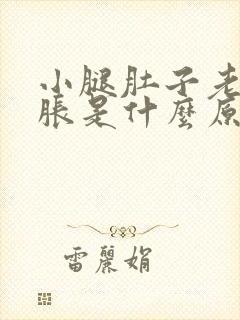 小腿肚子老
脹是什麼原
雷麗娟